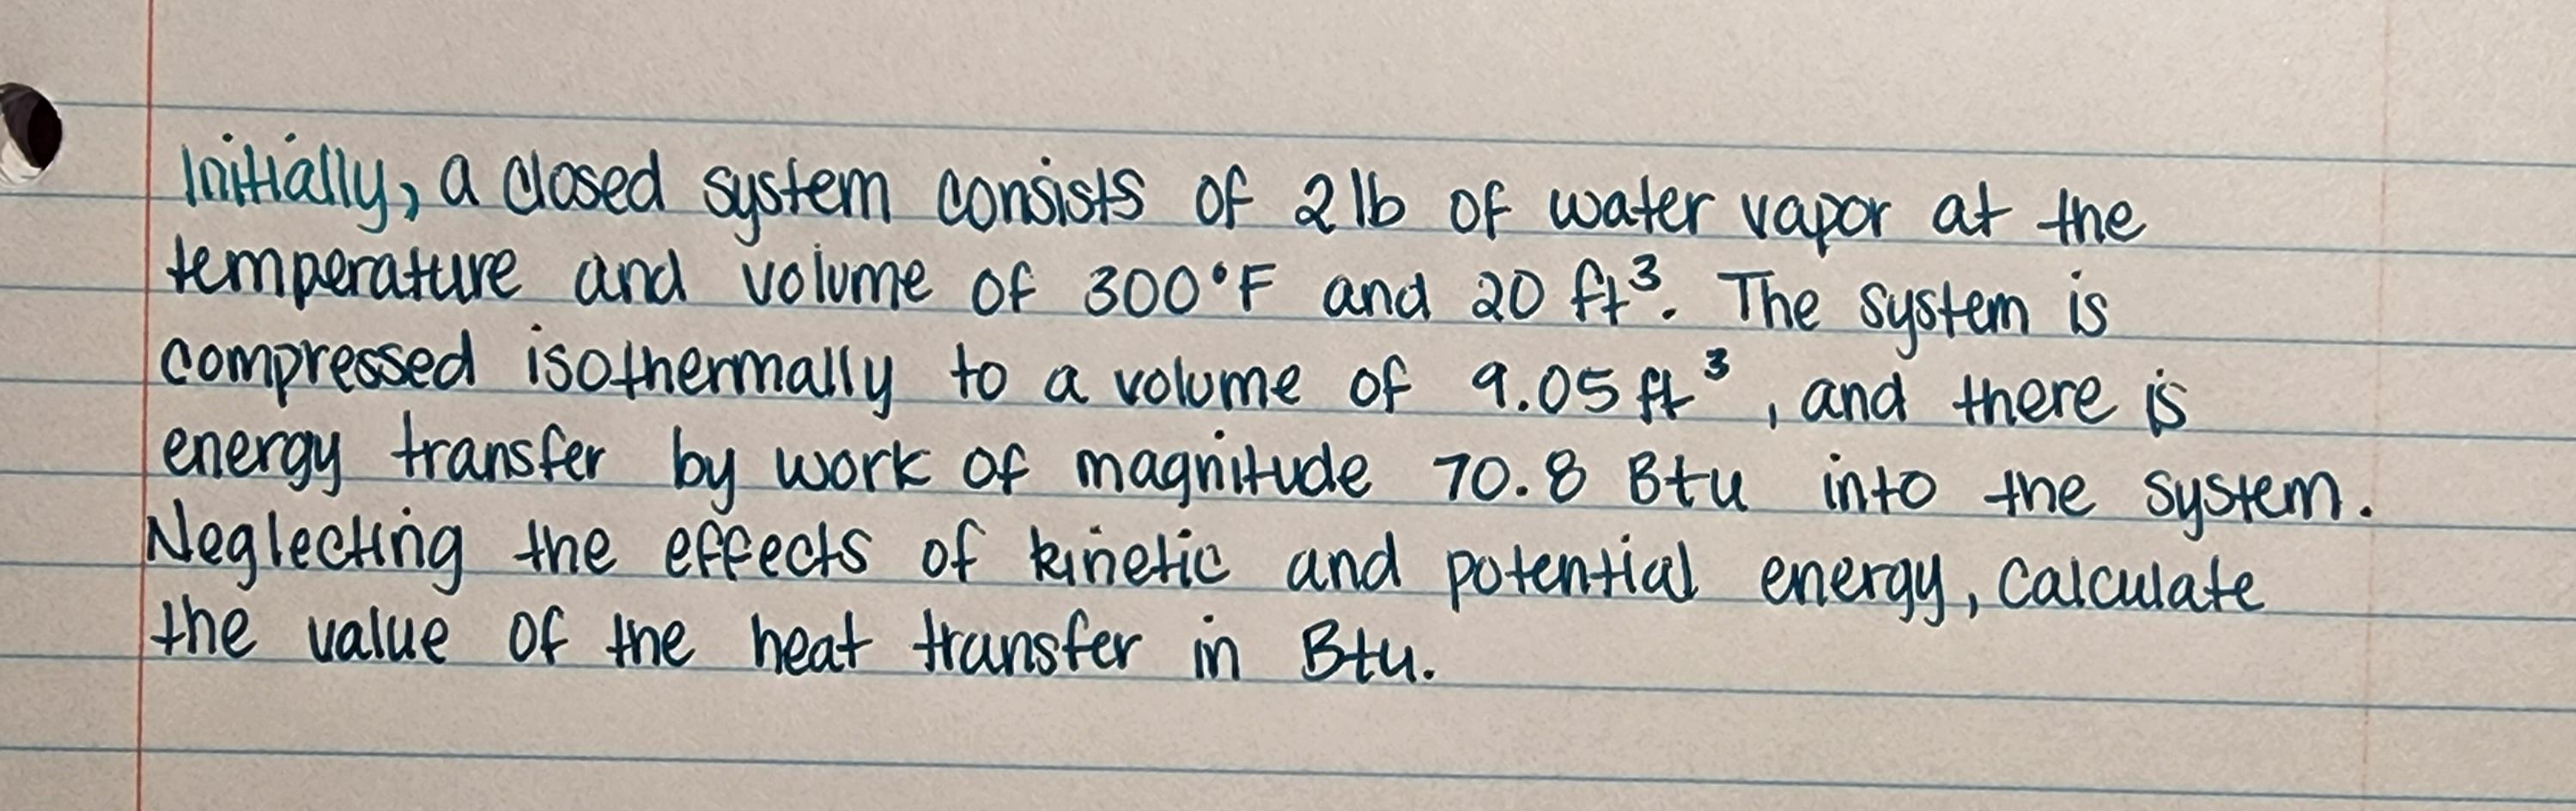 Initially, a closed system consists of 2 lb of water vapor at the
temperature and volume of 300°F and 20 ft³. The system is
compressed isothermally to a volume of 9.05 ft³, and there is
energy transfer by work of magnitude 70.8 Btu into the system.
Neglecting the effects of kinetic and potential energy, calculate
the value of the heat transfer in Btu.